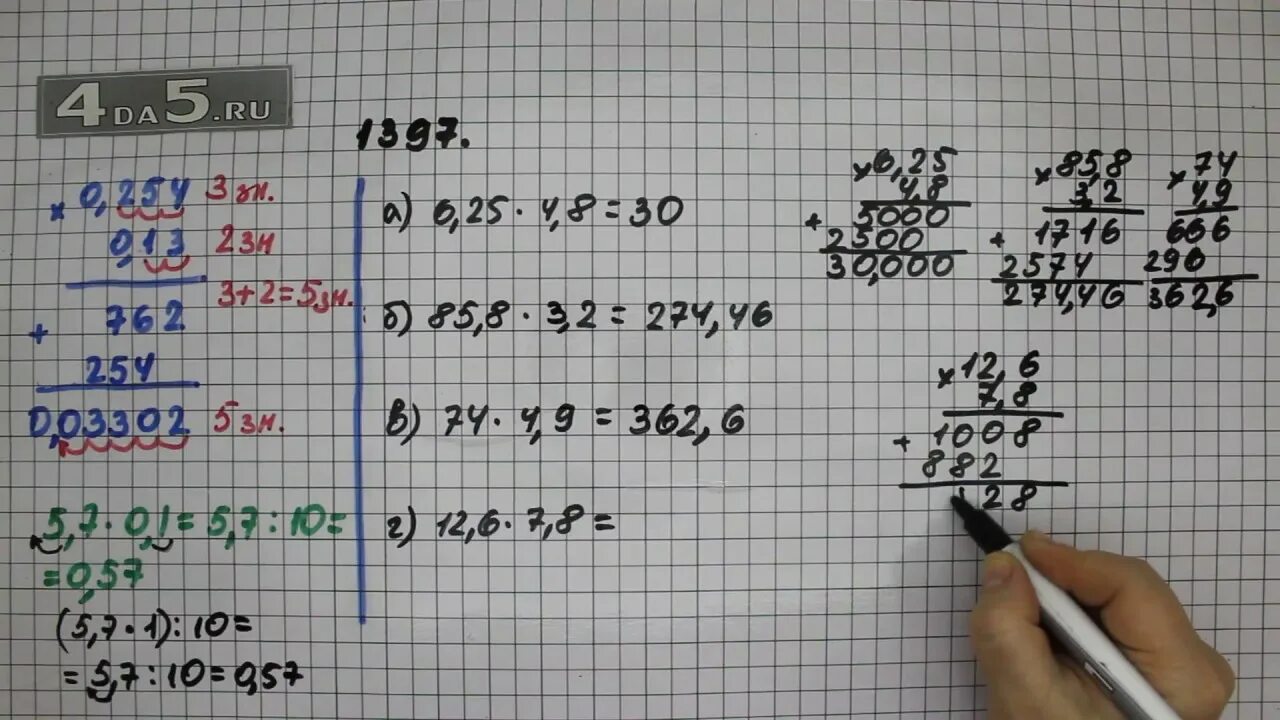 4DA5.RU
1397.
× 0,254 3 зн.
0,13 2 зн
3+2=5 зн.
+ 762
254
0,03302 5 зн.
5,7 · 0,1 = 5,7 : 10 =
= 0,57
(5,7 · 1) : 10 =
= 5,7 : 10 = 0,57
а) 6,25 · 4,8 = 30
б) 85,8 · 3,2 = 274,46
в) 74 · 4,9 = 362,6
г) 12,6 · 7,8 =
× 6,25
4,8
+ 5000
2500
30,000
× 85,8
3,2
+ 1716
2574
274,46
× 74
4,9
666
296
362,6
× 12,6
7,8
+ 1008
882
128